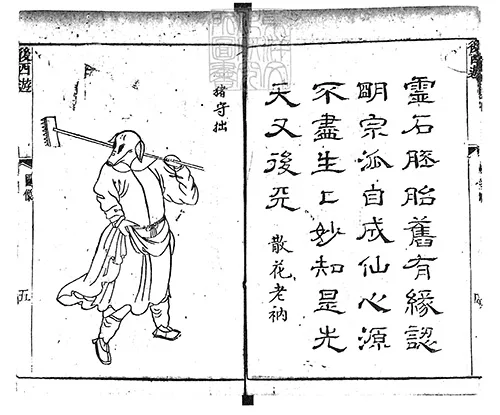 後西遊
靈石胚胎舊有緣認
明宗派自成仙心源
不盡生〻妙知是先
天又後天
散花老衲
猪守拙
後西遊
圖像
五